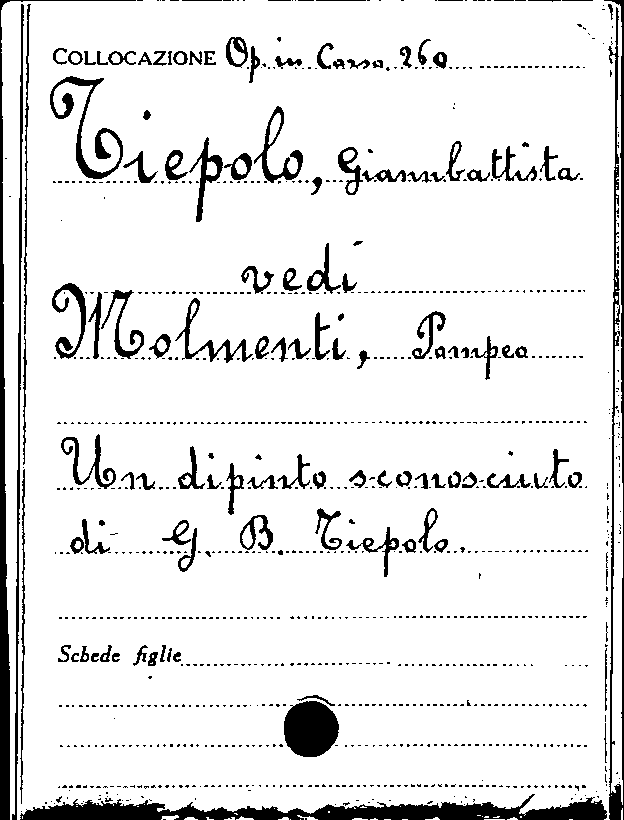 COLLOCAZIONE Op. in Corso. 260
Tiepolo, Giannbattista
vedi
Molmenti, Pompeo
Un dipinto sconosciuto
di G. B. Tiepolo.
Schede figlie